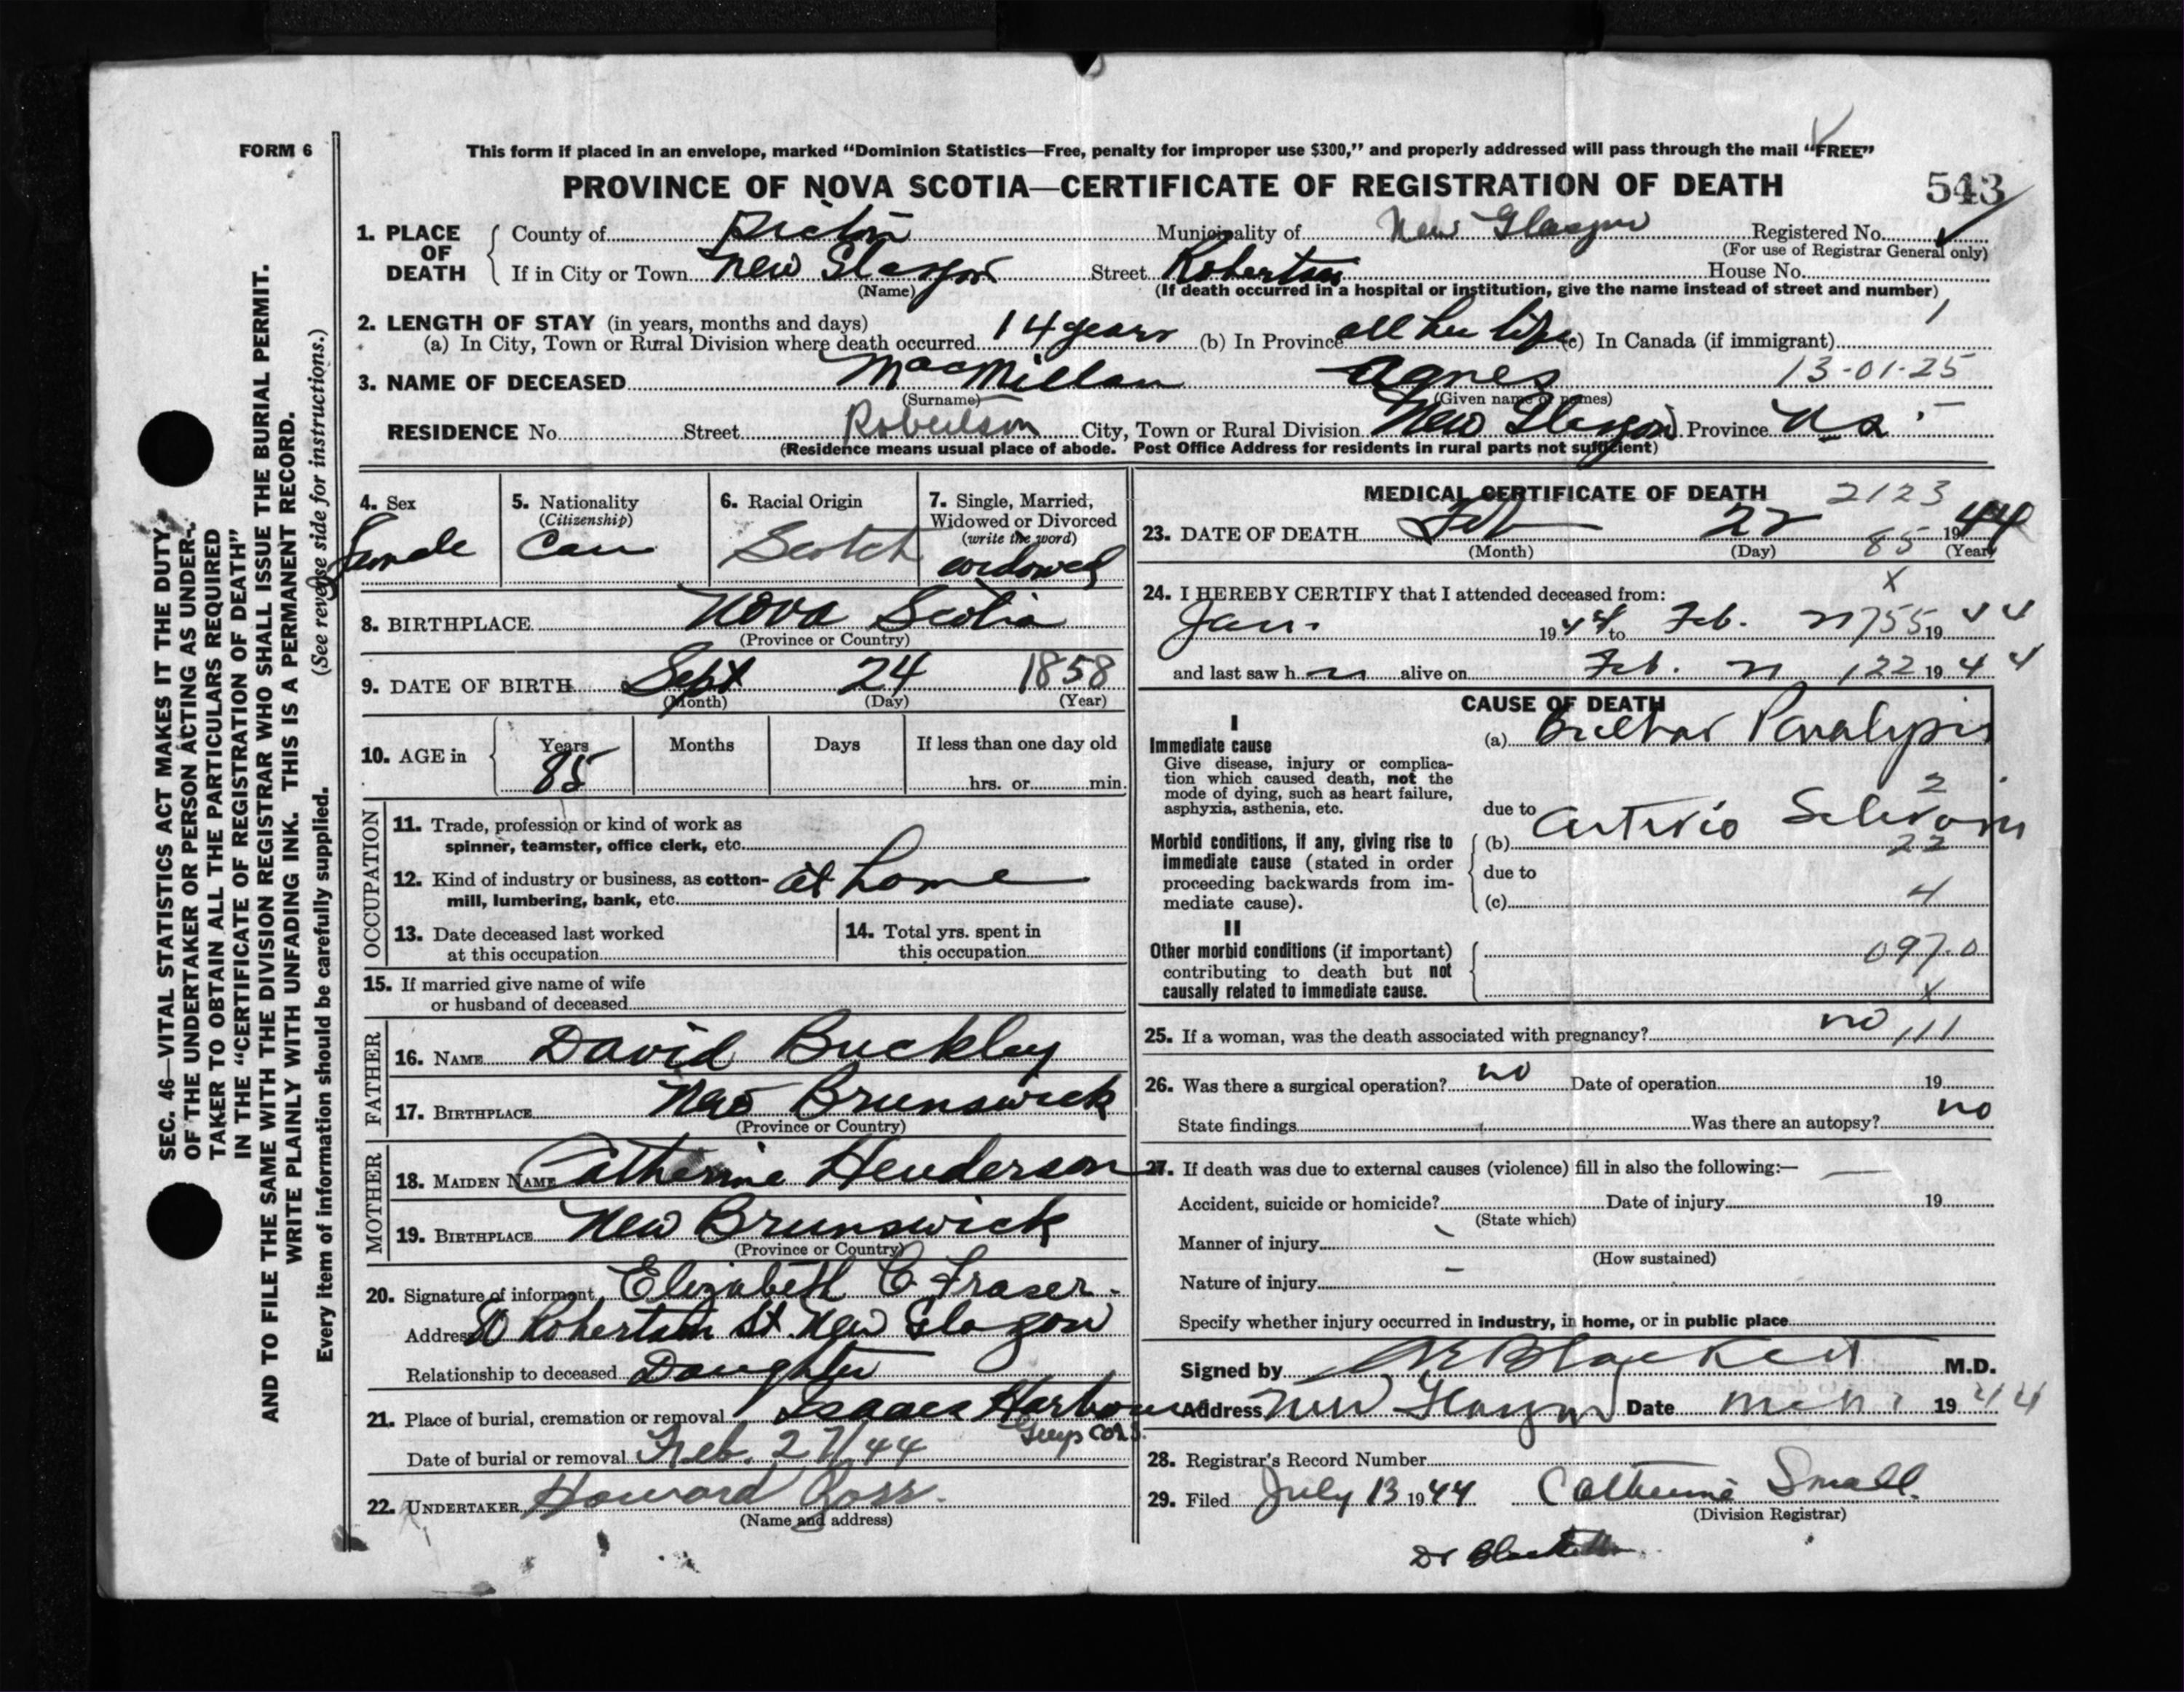 FORM 6
This form if placed in an envelope, marked “Dominion Statistics—Free, penalty for improper use $300,” and properly addressed will pass through the mail “FREE”
PROVINCE OF NOVA SCOTIA—CERTIFICATE OF REGISTRATION OF DEATH
543
1. PLACE OF DEATH
County of Pictou Municipality of New Glasgow Registered No.
(For use of Registrar General only)
If in City or Town New Glasgow Street Robertson House No.
(Name) (If death occurred in a hospital or institution, give the name instead of street and number)
2. LENGTH OF STAY (in years, months and days) 1
(a) In City, Town or Rural Division where death occurred 14 years (b) In Province all her life (c) In Canada (if immigrant)
3. NAME OF DECEASED MacMillan Agnes 13-01-25
(Surname) (Given name or names)
RESIDENCE No. Street Robertson City, Town or Rural Division New Glasgow Province N.S.
(Residence means usual place of abode. Post Office Address for residents in rural parts not sufficient)
4. Sex
female
5. Nationality
(Citizenship)
Can
6. Racial Origin
Scotch
7. Single, Married,
Widowed or Divorced
(write the word)
widowed
8. BIRTHPLACE Nova Scotia
(Province or Country)
9. DATE OF BIRTH Sept 24 1858
(Month) (Day) (Year)
10. AGE in
Years Months Days If less than one day old
85 hrs. or min.
OCCUPATION
11. Trade, profession or kind of work as
spinner, teamster, office clerk, etc.
12. Kind of industry or business, as cotton- at home
mill, lumbering, bank, etc.
13. Date deceased last worked
at this occupation
14. Total yrs. spent in
this occupation
15. If married give name of wife
or husband of deceased
FATHER
16. NAME David Buckley
17. BIRTHPLACE New Brunswick
(Province or Country)
MOTHER
18. MAIDEN NAME Catherine Henderson
19. BIRTHPLACE New Brunswick
(Province or Country)
20. Signature of informant Elizabeth C. Fraser
Address Robertson St. New Glasgow
Relationship to deceased Daughter
21. Place of burial, cremation or removal Isaacs Harbour
Guys Co N.S.
Date of burial or removal Feb. 27/44
22. UNDERTAKER Howard Ross.
(Name and address)
MEDICAL CERTIFICATE OF DEATH 2123
23. DATE OF DEATH Feb 22 85 1944
(Month) (Day) (Year)
x
24. I HEREBY CERTIFY that I attended deceased from:
Jan. 1944 to Feb. 21 755 1944
and last saw her alive on Feb. 21 122 1944
CAUSE OF DEATH
I
Immediate cause
Give disease, injury or complica-
tion which caused death, not the
mode of dying, such as heart failure,
asphyxia, asthenia, etc.
(a) Bulbar Paralysis
2
due to
Morbid conditions, if any, giving rise to
immediate cause (stated in order
proceeding backwards from im-
mediate cause).
(b) Arterio Sclerosis
22
due to
(c) 4
II
Other morbid conditions (if important)
contributing to death but not
causally related to immediate cause.
097.0
x
25. If a woman, was the death associated with pregnancy? no 111
26. Was there a surgical operation? no Date of operation 19
State findings Was there an autopsy? no
27. If death was due to external causes (violence) fill in also the following:—
Accident, suicide or homicide? Date of injury 19
(State which)
Manner of injury
(How sustained)
Nature of injury
Specify whether injury occurred in industry, in home, or in public place
Signed by Blackett M.D.
Address New Glasgow Date 1944
28. Registrar's Record Number
29. Filed July 13 1944 Catherine Small.
(Division Registrar)
Dr Blackett
SEC. 46—VITAL STATISTICS ACT MAKES IT THE DUTY
OF THE UNDERTAKER OR PERSON ACTING AS UNDER-
TAKER TO OBTAIN ALL THE PARTICULARS REQUIRED
IN THE “CERTIFICATE OF REGISTRATION OF DEATH”
AND TO FILE THE SAME WITH THE DIVISION REGISTRAR WHO SHALL ISSUE THE BURIAL PERMIT.
WRITE PLAINLY WITH UNFADING INK. THIS IS A PERMANENT RECORD.
Every item of information should be carefully supplied. (See reverse side for instructions.)